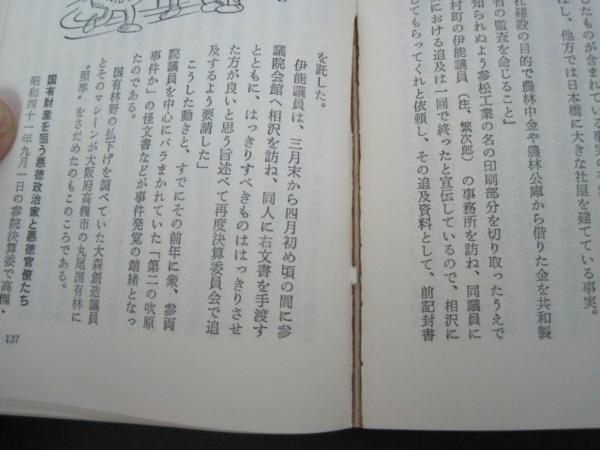 したものが含まれている事実の
し、他方では日本橋に大きな社屋を建てている事実。
社建設の目的で農林中金や農林公庫から借りた金を共和製
者の監査を命じること』
知られぬよう参松工業の名の印刷部分を切り取ったうえで
村町の伊能議員（注、繁次郎）の事務所を訪ね、同議員に
における追及は一回で終ったと宣伝しているので、相沢に
してもらってくれと依頼し、その追及資料として、前記封書
を託した。
伊能議員は、三月末から四月初め頃の間に参
議院会館へ相沢を訪ね、同人に右文書を手渡す
とともに、はっきりすべきものははっきりさせ
た方が良いと思う旨述べて再度決算委員会で追
及するよう要請した」
こうした動きと、すでにその前年に衆、参両
院議員を中心にバラまかれていた「第二の吹原
事件か」の怪文書などが事件発覚の端緒となっ
たのである。
国有林野の払下げを調べていた大森創造議員
とそのマシーンが大阪府高槻市の丸尾国有林に
〝照準〟をさだめたのもこのころである。
国有財産を狙う悪徳政治家と悪徳官僚たち
昭和四十一年九月一日の参院決算委で高槻・
137